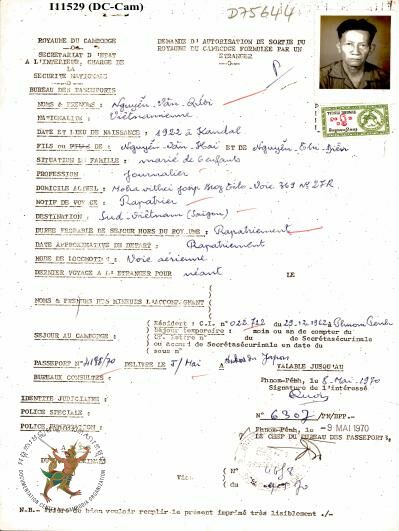 I11529 (DC-Cam)
D75644
ROYAUME DU CAMBODGE
SECRETARIAT D'ETAT
A L'INTERIEUR, CHARGE DE
LA
SECURITE NATIONALE
BUREAU DES PASSEPORTS
DEMANDE D'AUTORISATION DE SORTIE DU
ROYAUME DU CAMBODGE FORMULEE PAR UN
ETRANGER
NOMS & PRENOMS : Nguyễn-Văn-
NATIONALITE : Vietnamienne
DATE ET LIEU DE NAISSANCE : 1922 à Kandal
FILS ou FILLE DE : Nguyễn-Văn-Hai ET DE Nguyễn-Thi-Biên
SITUATION DE FAMILLE : marié de 6 enfants
PROFESSION : Journalier
DOMICILE ACTUEL : Voie 369 Nº 27R
MOTIF DE VOYAGE : Rapatrier
DESTINATION : Sud-Viêtnam (Saigon)
DUREE PROBABLE DE SEJOUR HORS DU ROYAUME : Rapatriement
DATE APPROXIMATIVE DE DEPART : Rapatriement
MODE DE LOCOMOTION : Voie aérienne
DERNIER VOYAGE A L'ETRANGER POUR néant LE
NOMS & PRENOMS DES MINEURS L'ACCOMPAGNANT
SEJOUR AU CAMBODGE :
Résident : C.I. N° 022.722 du 29.12.1962 à Phnom Penh
Séjour temporaire : mois ou an de compter du
CF. lettre N° du de Secrétasécurinale
ou Accord de Secrétasécurinale en date du
sous n°
PASSEPORT N° 4195/70 DELIVRE LE 5/Mai A VALABLE JUSQU'AU
BUREAUX CONSULTES :
Phnom-Pénh, le 8-Mai-1970
Signature de l'intéressé
IDENTITE JUDICIAIRE :
POLICE SPECIALE :
N° 6307/PN/BPP.-
Phnom-Pénh, le -9 MAI 1970
LE CHEF DU BUREAU DES PASSEPORTS,
DOCUMENTATION CENTER OF CAMBODIA ORGANIZATION
N.B.- Prière de bien vouloir remplir le présent imprimé très lisiblement ./-